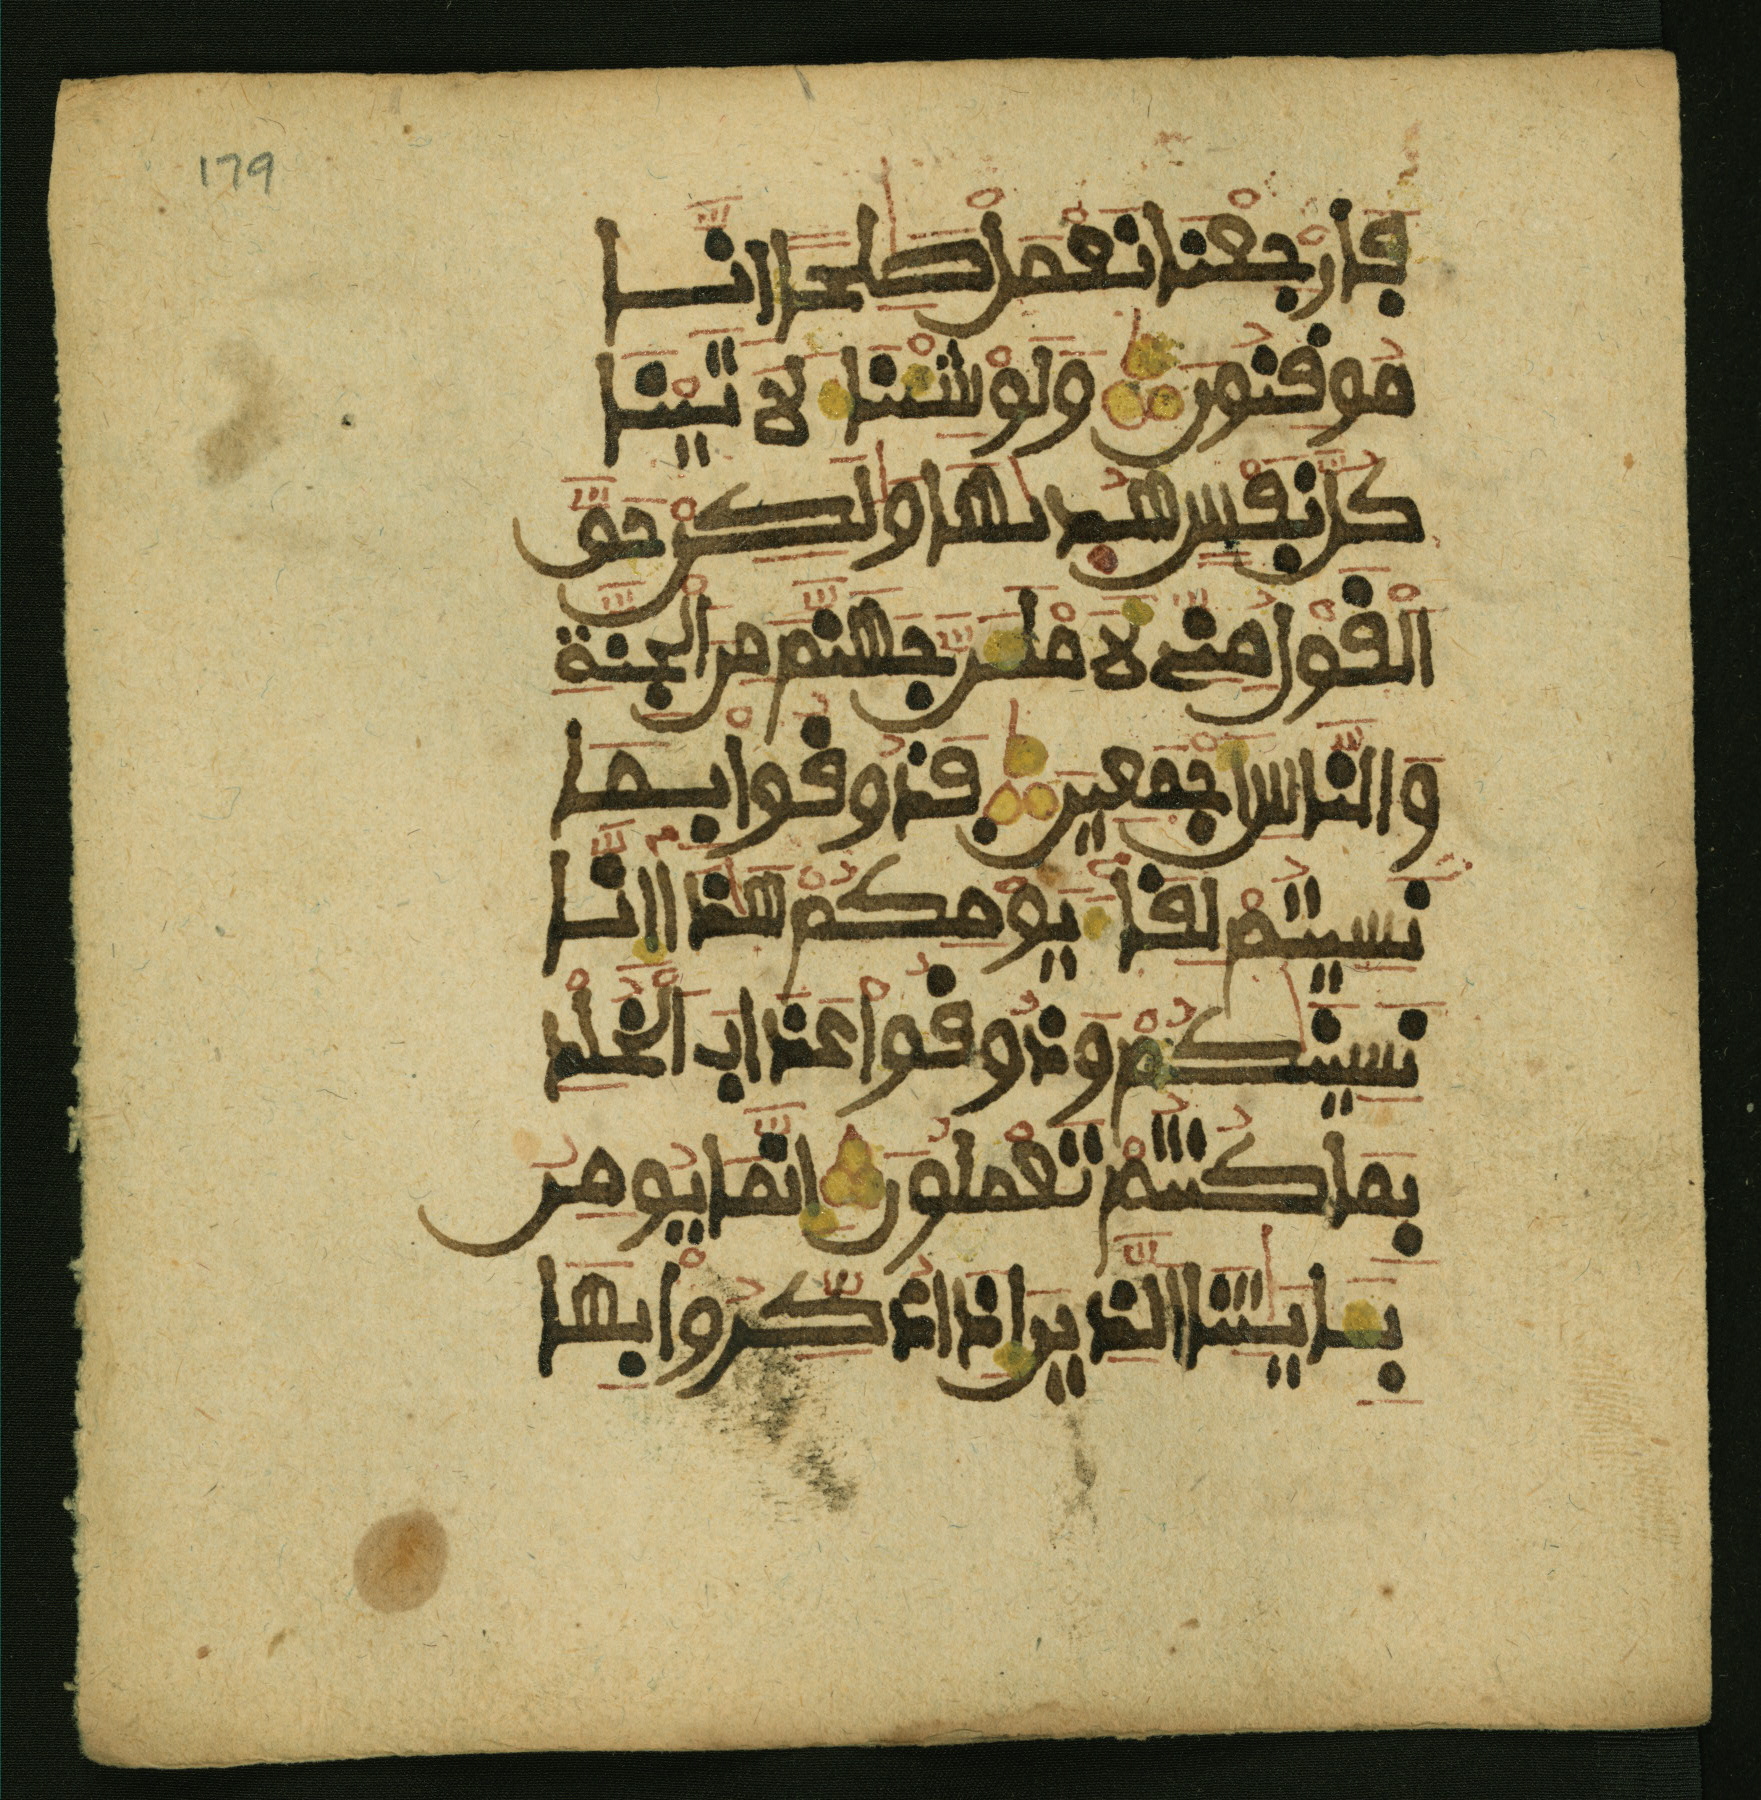 179
فَارْجِعْنَا نَعْمَلْ صَٰلِحًا اِنَّا
مُوقِنُونَ وَلَوْ شِئْنَا لَأتَيْنَا
كُلَّ نَفْسٍ هُدٜىٰهَا وَلَٰكِنْ حَقَّ
الْقَوْلُ مِنِّے لَأَمْلَأَنَّ جَهَنَّمَ مِنَ الْجِنَّةِ
وَالنَّاسِ أَجْمَعِينَ فَذُوقُوا بِمَا
نَسِيتُمْ لِقَآءَ يَوْمِكُمْ هَٰذَآ إِنَّا
نَسِينَٰكُمْ وَذُوقُوا عَذَابَ الْخُلْدِ
بِمَا كُنتُمْ تَعْمَلُونَ إِنَّمَا يُومِنُ
بِـَٔايَٰتِنَا الَّذِينَ إِذَا ذُكِّرُوا بِهَا